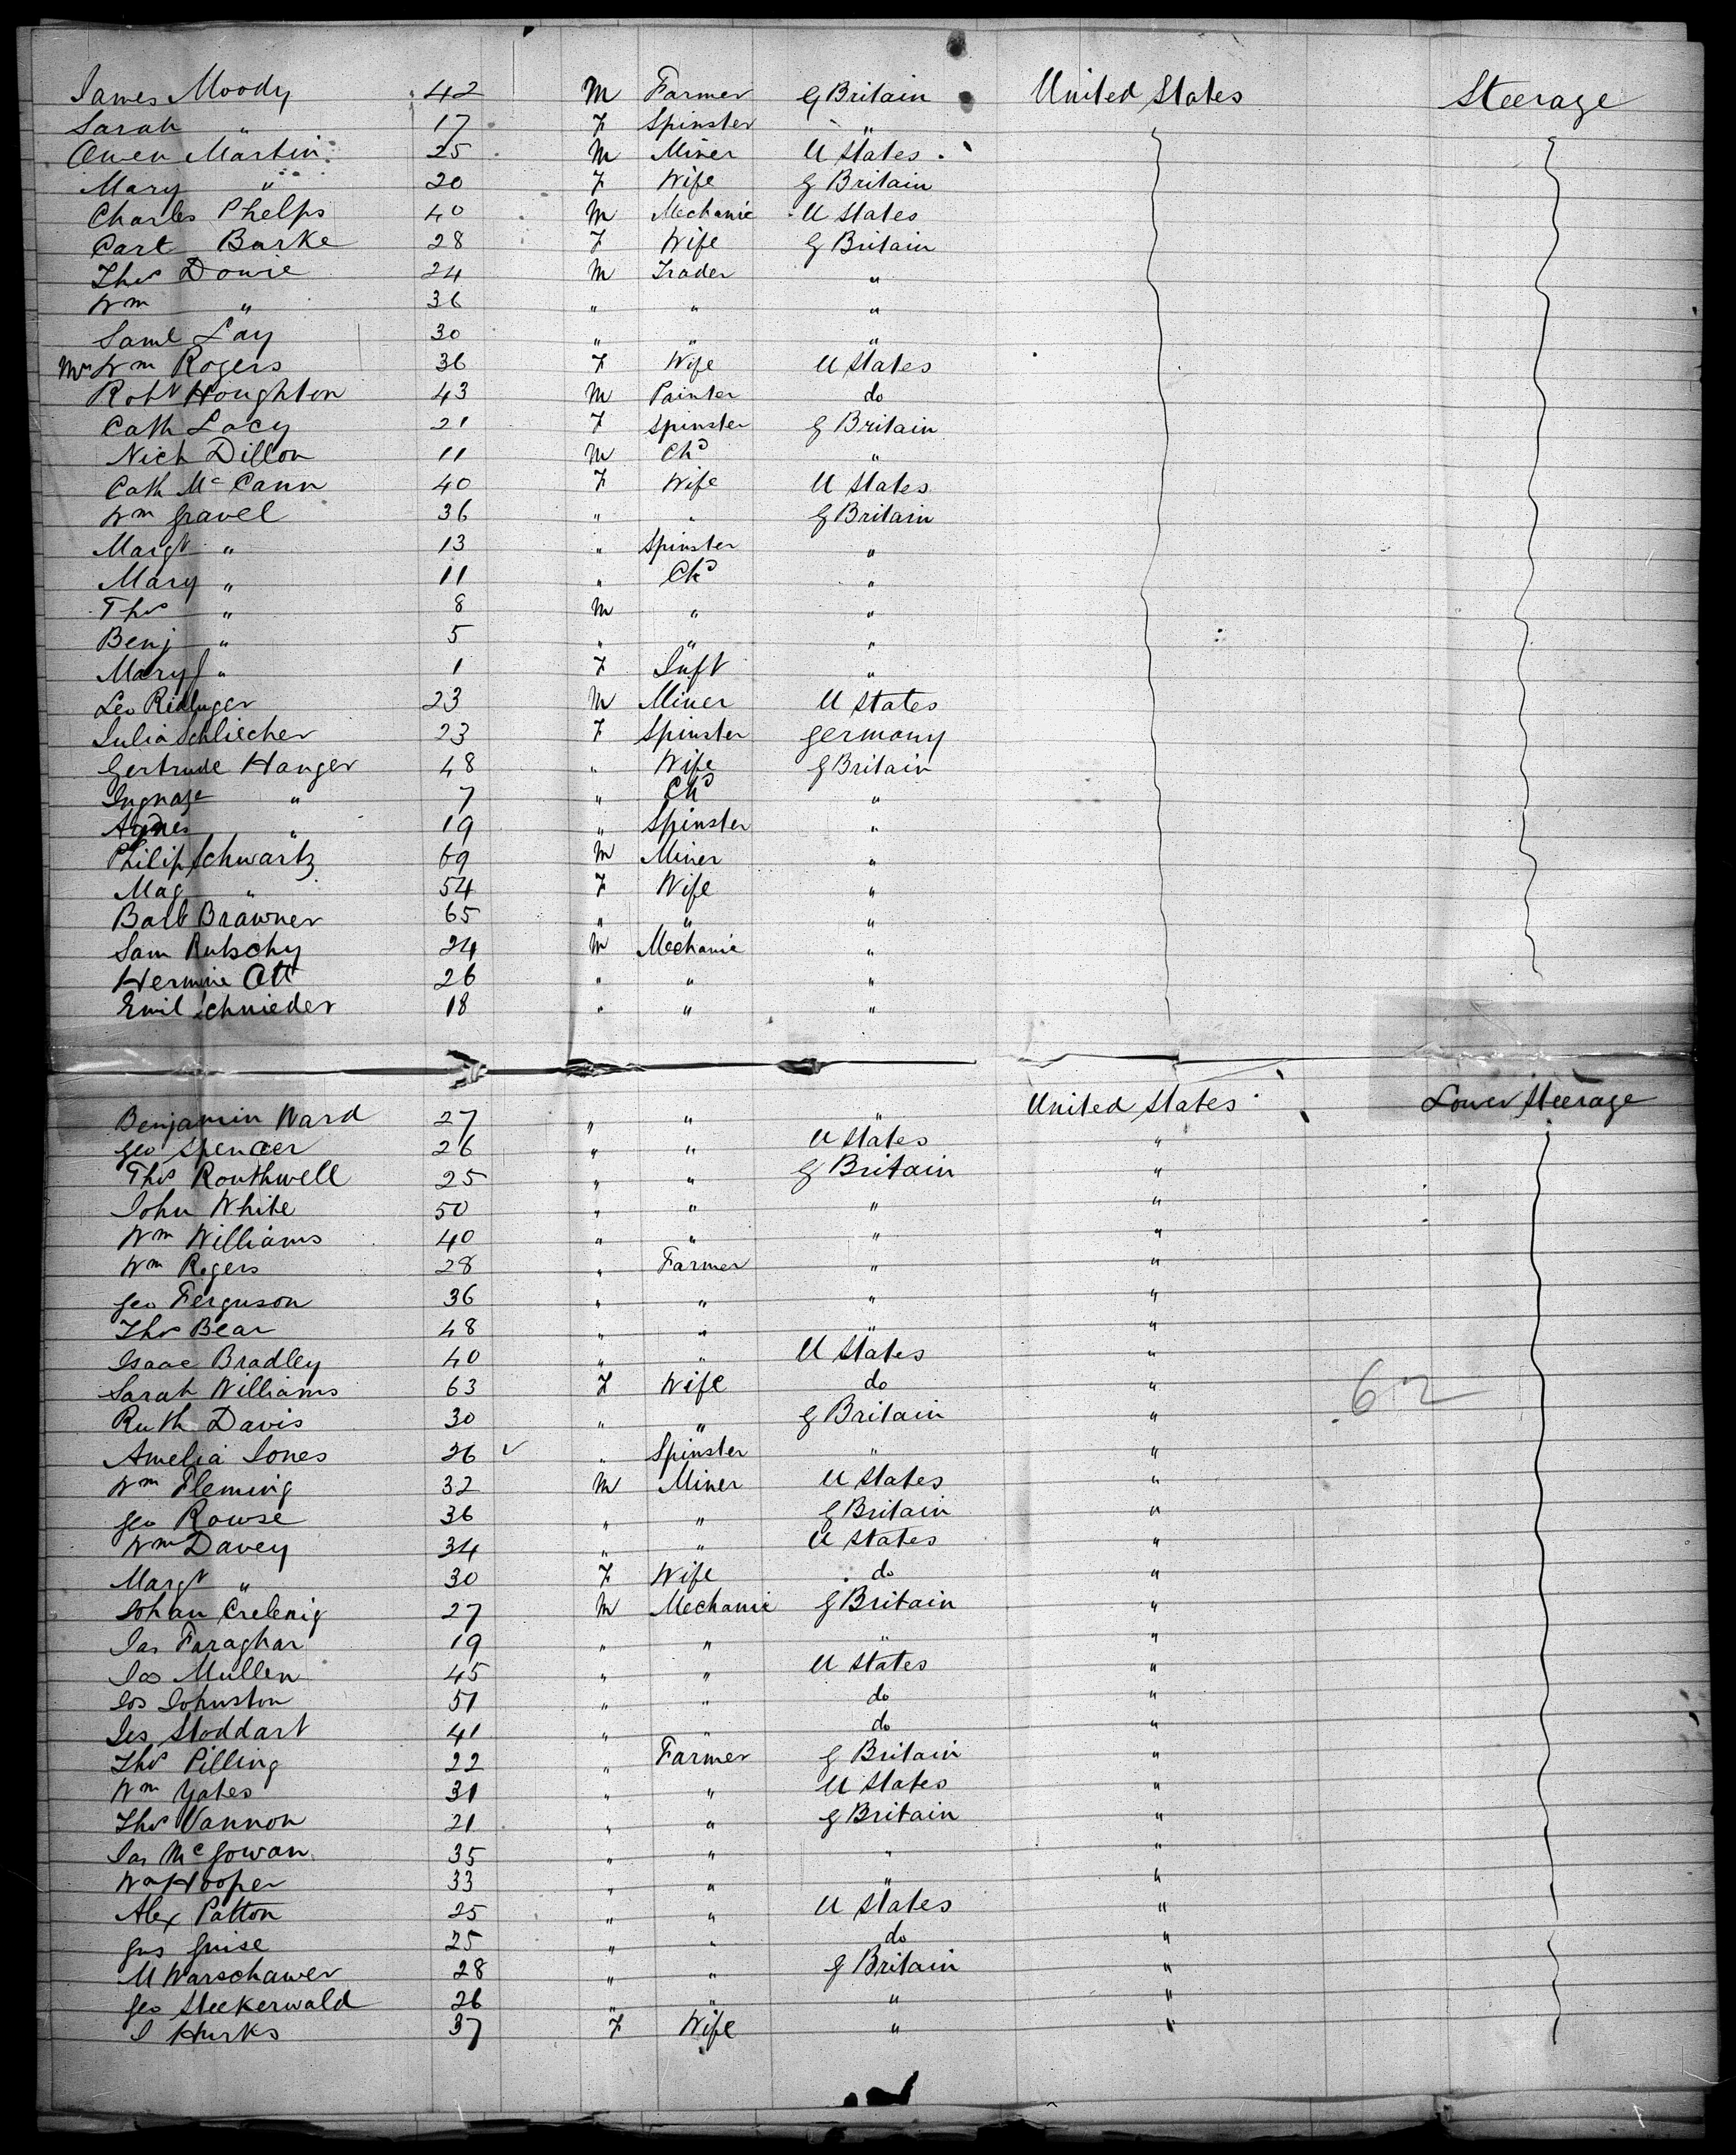 James Moody 42 M Farmer G Britain United States Steerage
Sarah " 17 F Spinster "
Owen Martin 25 M Miner U States
Mary " 20 F Wife G Britain
Charles Phelps 40 M Mechanic U States
Cart Burke 28 F Wife G Britain
Thos Dowie 24 M Trader "
Wm " 36 " " "
Saml Lay 30 " " "
Mrs Wm Rogers 36 F Wife U States
Robt Houghton 43 M Painter do
Cath Lacy 21 F Spinster G Britain
Nich Dillon 11 M Chd "
Cath McCann 40 F Wife U States
Wm Gravel 36 " " G Britain
Margt " 13 " Spinster "
Mary " 11 " Chd "
Thos " 8 M " "
Benj " 5 " " "
Mary J " 1 F Inft "
Leo 23 M Miner U States
Julia Schliecher 23 F Spinster Germany
Gertrude Hanger 48 " Wife G Britain
Ingnaze " 7 " Chd "
Agnes " 19 " Spinster "
Philip Schwartz 69 M Miner "
Mag " 54 F Wife "
Barb Brawner 65 " " "
Sam Rutschy 24 M Mechanic "
Hermine Ott 26 " " "
Emil Schnieder 18 " " "
Benjamin Ward 27 " " " United States Lower Steerage
Geo Spencer 26 " " U States "
Thos Routhwell 25 " " G Britain "
John White 50 " " " "
Wm Williams 40 " " " "
Wm Rogers 28 " Farmer " "
Geo Ferguson 36 " " " "
Thos Bear 48 " " " "
Isaac Bradley 40 " " U States "
Sarah Williams 63 F Wife do " 62
Ruth Davis 30 " " G Britain "
Amelia Jones 26 " Spinster " "
Wm Fleming 32 M Miner U States "
Geo Rowse 36 " " G Britain "
Wm Davey 34 " " U States "
Margt " 30 F Wife do "
Johan Crelenig 27 M Mechanic G Britain "
Jas Faraghar 19 " " " "
Jas Mullen 45 " " U States "
Jos Johnston 51 " " do "
Jes Stoddart 41 " " do "
Thos Pilling 22 " Farmer G Britain "
Wm Yates 31 " " U States "
Thos Vannon 21 " " G Britain "
Jas McGowan 35 " " " "
Wm Hooper 33 " " " "
Alex Patton 25 " " U States "
Gus Guise 25 " " do "
M Warschawer 28 " " G Britain "
Geo Steekerwald 26 " " " "
J Hurks 37 F Wife " "